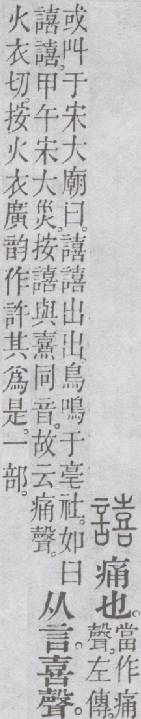 譆痛也。當作痛
聲。左傳。
或叫于宋大廟曰。譆譆出出。鳥鳴于亳社。如曰
譆譆。甲午宋大災。按譆與熹同音。故云痛聲。
从言。喜聲。
火衣切。按火衣廣韵作許其爲是。一部。